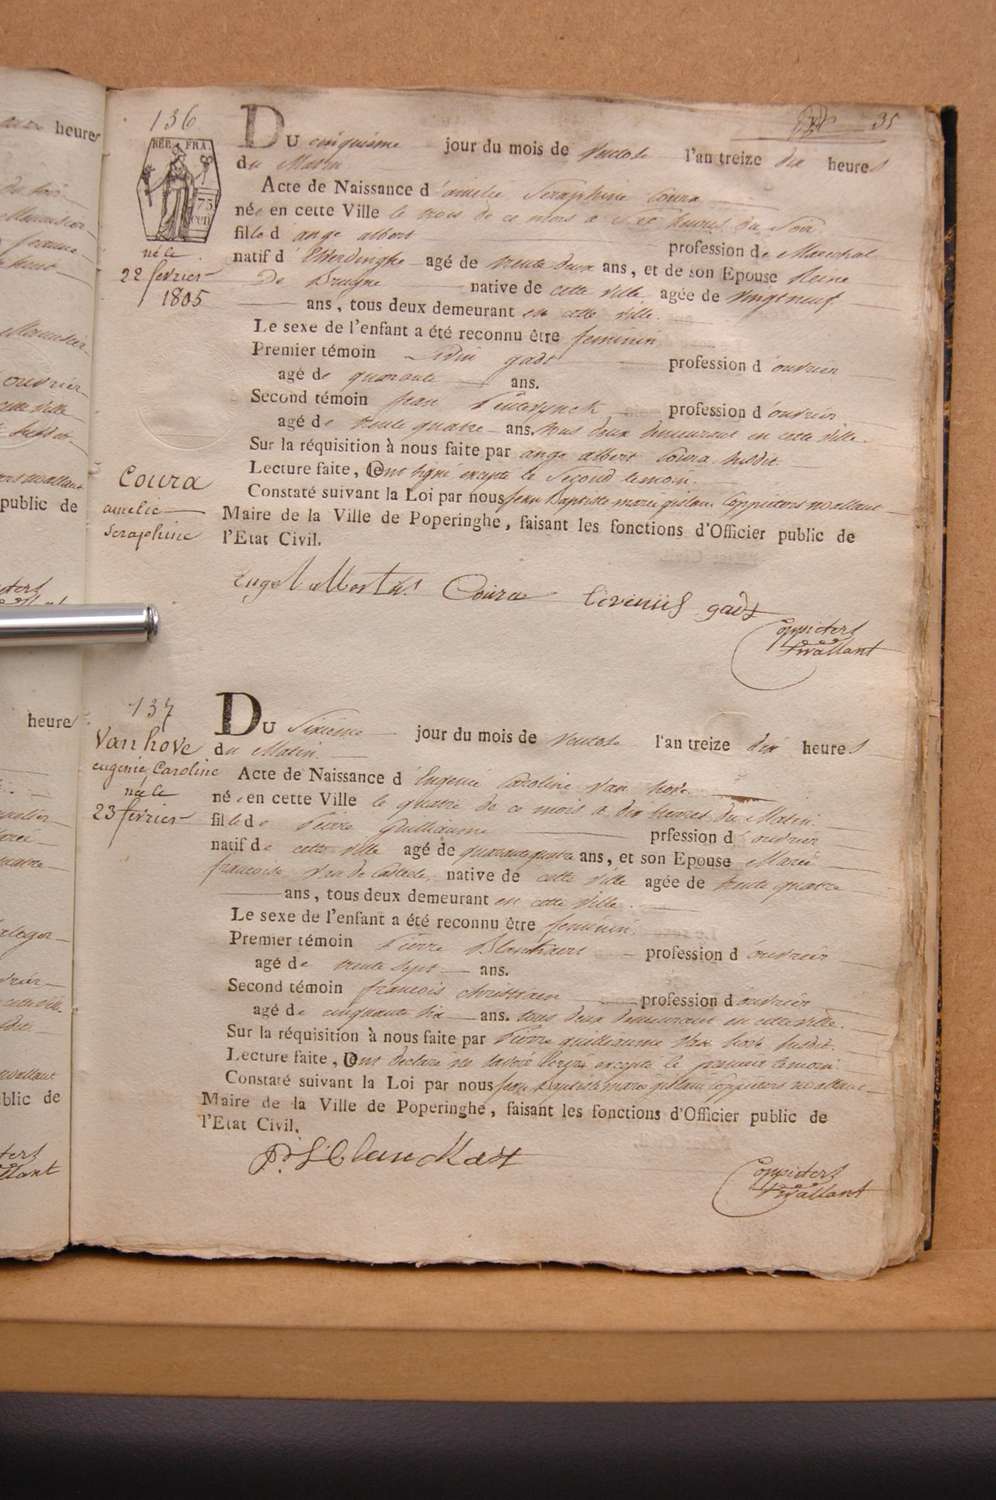 35
136
REP. FRA.
75
cen
née
22 fevrier
1805
Coura
amelie
Seraphine
DU cinquieme jour du mois de Ventose l'an treize dix heures
du Matin
Acte de Naissance d'amelie Seraphine Coura
née en cette Ville le trois de ce mois a sept heures du Soir
fille d'ange albert profession de Marechal
natif d'Elverdinghe agé de trente deux ans, et de son Epouse Reine
De Bruyne native de cette ville agée de vingt neuf
ans, tous deux demeurant en cette ville.
Le sexe de l'enfant a été reconnu être feminin
Premier témoin gadt profession d'ouvrier
agé de quarante ans.
Second témoin Jean profession d'ouvrier
agé de trente quatre ans. tous deux demeurant en cette ville.
Sur la réquisition à nous faite par ange albert Coura susdit.
Lecture faite, Ont signé excepté le Second temoin.
Constaté suivant la Loi par nous Jean Baptiste marie gislain Coppieters wallant
Maire de la Ville de Poperinghe, faisant les fonctions d'Officier public de
l'Etat Civil.
Engelbertus Coura Livinus gadt
Coppieters
Wallant
137
Van hove
eugenie Caroline
née le
23 fevrier
DU Sixieme jour du mois de Ventose l'an treize dix heures
du Matin.
Acte de Naissance d'Eugenie Caroline Van hove
née en cette Ville le quatre de ce mois a dix heures du Matin
fille de Pierre Guillaume prfession d'ouvrier
natif de cette ville agé de quarante quatre ans, et son Epouse Marie
francoise Van de Casteele native de cette ville agée de trente quatre
ans, tous deux demeurant en cette ville.
Le sexe de l'enfant a été reconnu être feminin.
Premier témoin Pierre Blanckaert profession d'ouvrier
agé de trente sept ans.
Second témoin francois christiaen profession d'ouvrier
agé de cinquante six ans. tous deux demeurant en cette ville.
Sur la réquisition à nous faite par Pierre guilleaume Van hove susdit.
Lecture faite, Ont declaré ne savoir ecrire excepté le premier temoin.
Constaté suivant la Loi par nous Jean Baptiste marie gislain coppieters wallant
Maire de la Ville de Poperinghe, faisant les fonctions d'Officier public de
l'Etat Civil.
Blanckaert
Coppieters
Wallant